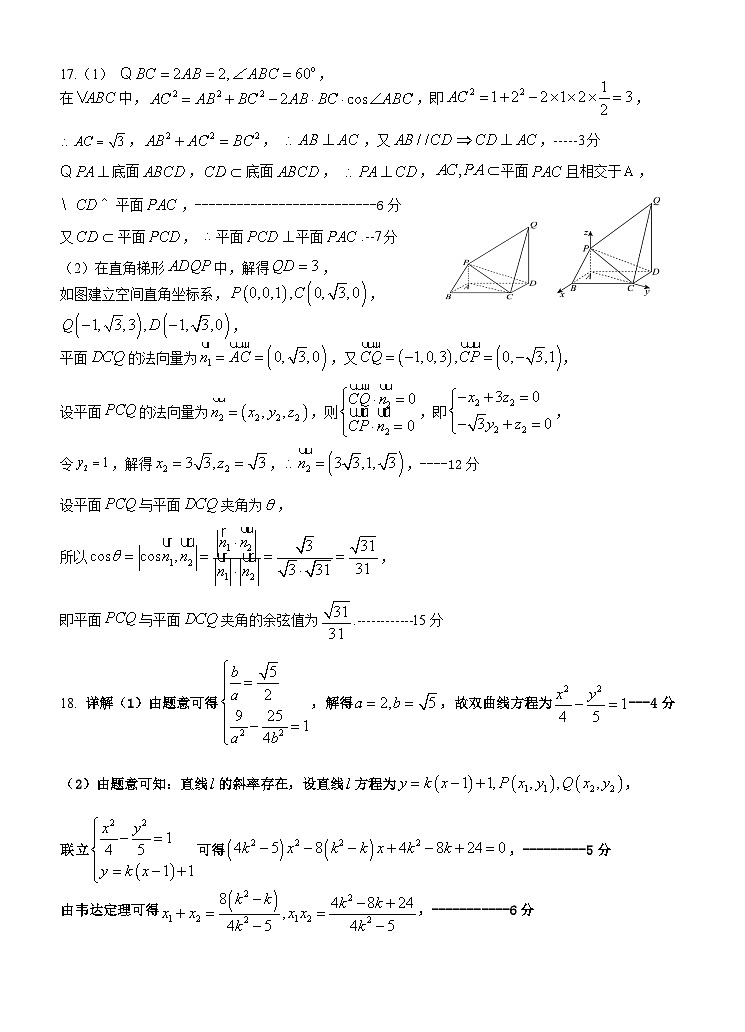 17.(1) Q BC = 2AB = 2, ∠ABC = 60°,
在 VABC 中, AC² = AB² + BC² − 2AB · BC · cos∠ABC ,即 AC² = 1 + 2² − 2×1×2× 1/2 = 3 ,
∴ AC = √3 , AB² + AC² = BC² , ∴ AB ⊥ AC ,又 AB / /CD ⇒ CD ⊥ AC ,-----3分
Q PA ⊥ 底面 ABCD , CD ⊂ 底面 ABCD , ∴ PA ⊥ CD , AC, PA ⊂ 平面 PAC 且相交于 A ,
\ CD ^ 平面 PAC ,--------------------------6分
又 CD ⊂ 平面 PCD , ∴ 平面 PCD ⊥ 平面 PAC .--7分
(2)在直角梯形 ADQP 中,解得 QD = 3 ,
如图建立空间直角坐标系, P(0,0,1), C(0, √3, 0) ,
Q(−1, √3, 3), D(−1, √3, 0) ,
平面 DCQ 的法向量为 n₁ = AC = (0, √3, 0) ,又 CQ = (−1,0,3), CP = (0,−√3,1),
设平面 PCQ 的法向量为 n₂ = (x₂, y₂, z₂) ,则 { CQ · n₂ = 0 CP · n₂ = 0 ,即 { −x₂ + 3z₂ = 0 −√3y₂ + z₂ = 0 ,
令 y₂ = 1 ,解得 x₂ = 3√3, z₂ = √3 , ∴ n₂ = (3√3, 1, √3) ,----12分
设平面 PCQ 与平面 DCQ 夹角为 θ ,
所以 cosθ = |cos n₁, n₂| = |n₁ · n₂| / |n₁| · |n₂| = √3 / √3 · √31 = √31 / 31 ,
即平面 PCQ 与平面 DCQ 夹角的余弦值为 √31 / 31 .------------15分
Q
P
A
B
C
D
z
Q
P
A
B
C
D
x
y
18. 详解(1)由题意可得 { b/a = √5/2 9/a² − 25/4b² = 1 ,解得 a = 2, b = √5 ,故双曲线方程为 x²/4 − y²/5 = 1---4分
(2)由题意可知:直线 l 的斜率存在,设直线 l 方程为 y = k(x−1)+1, P(x₁, y₁), Q(x₂, y₂) ,
联立 { x²/4 − y²/5 = 1 y = k(x−1)+1 可得 (4k²−5)x² − 8(k²−k)x + 4k² − 8k + 24 = 0 ,---------5分
由韦达定理可得 x₁ + x₂ = 8(k²−k) / 4k²−5 , x₁x₂ = 4k²−8k+24 / 4k²−5 ,-----------6分